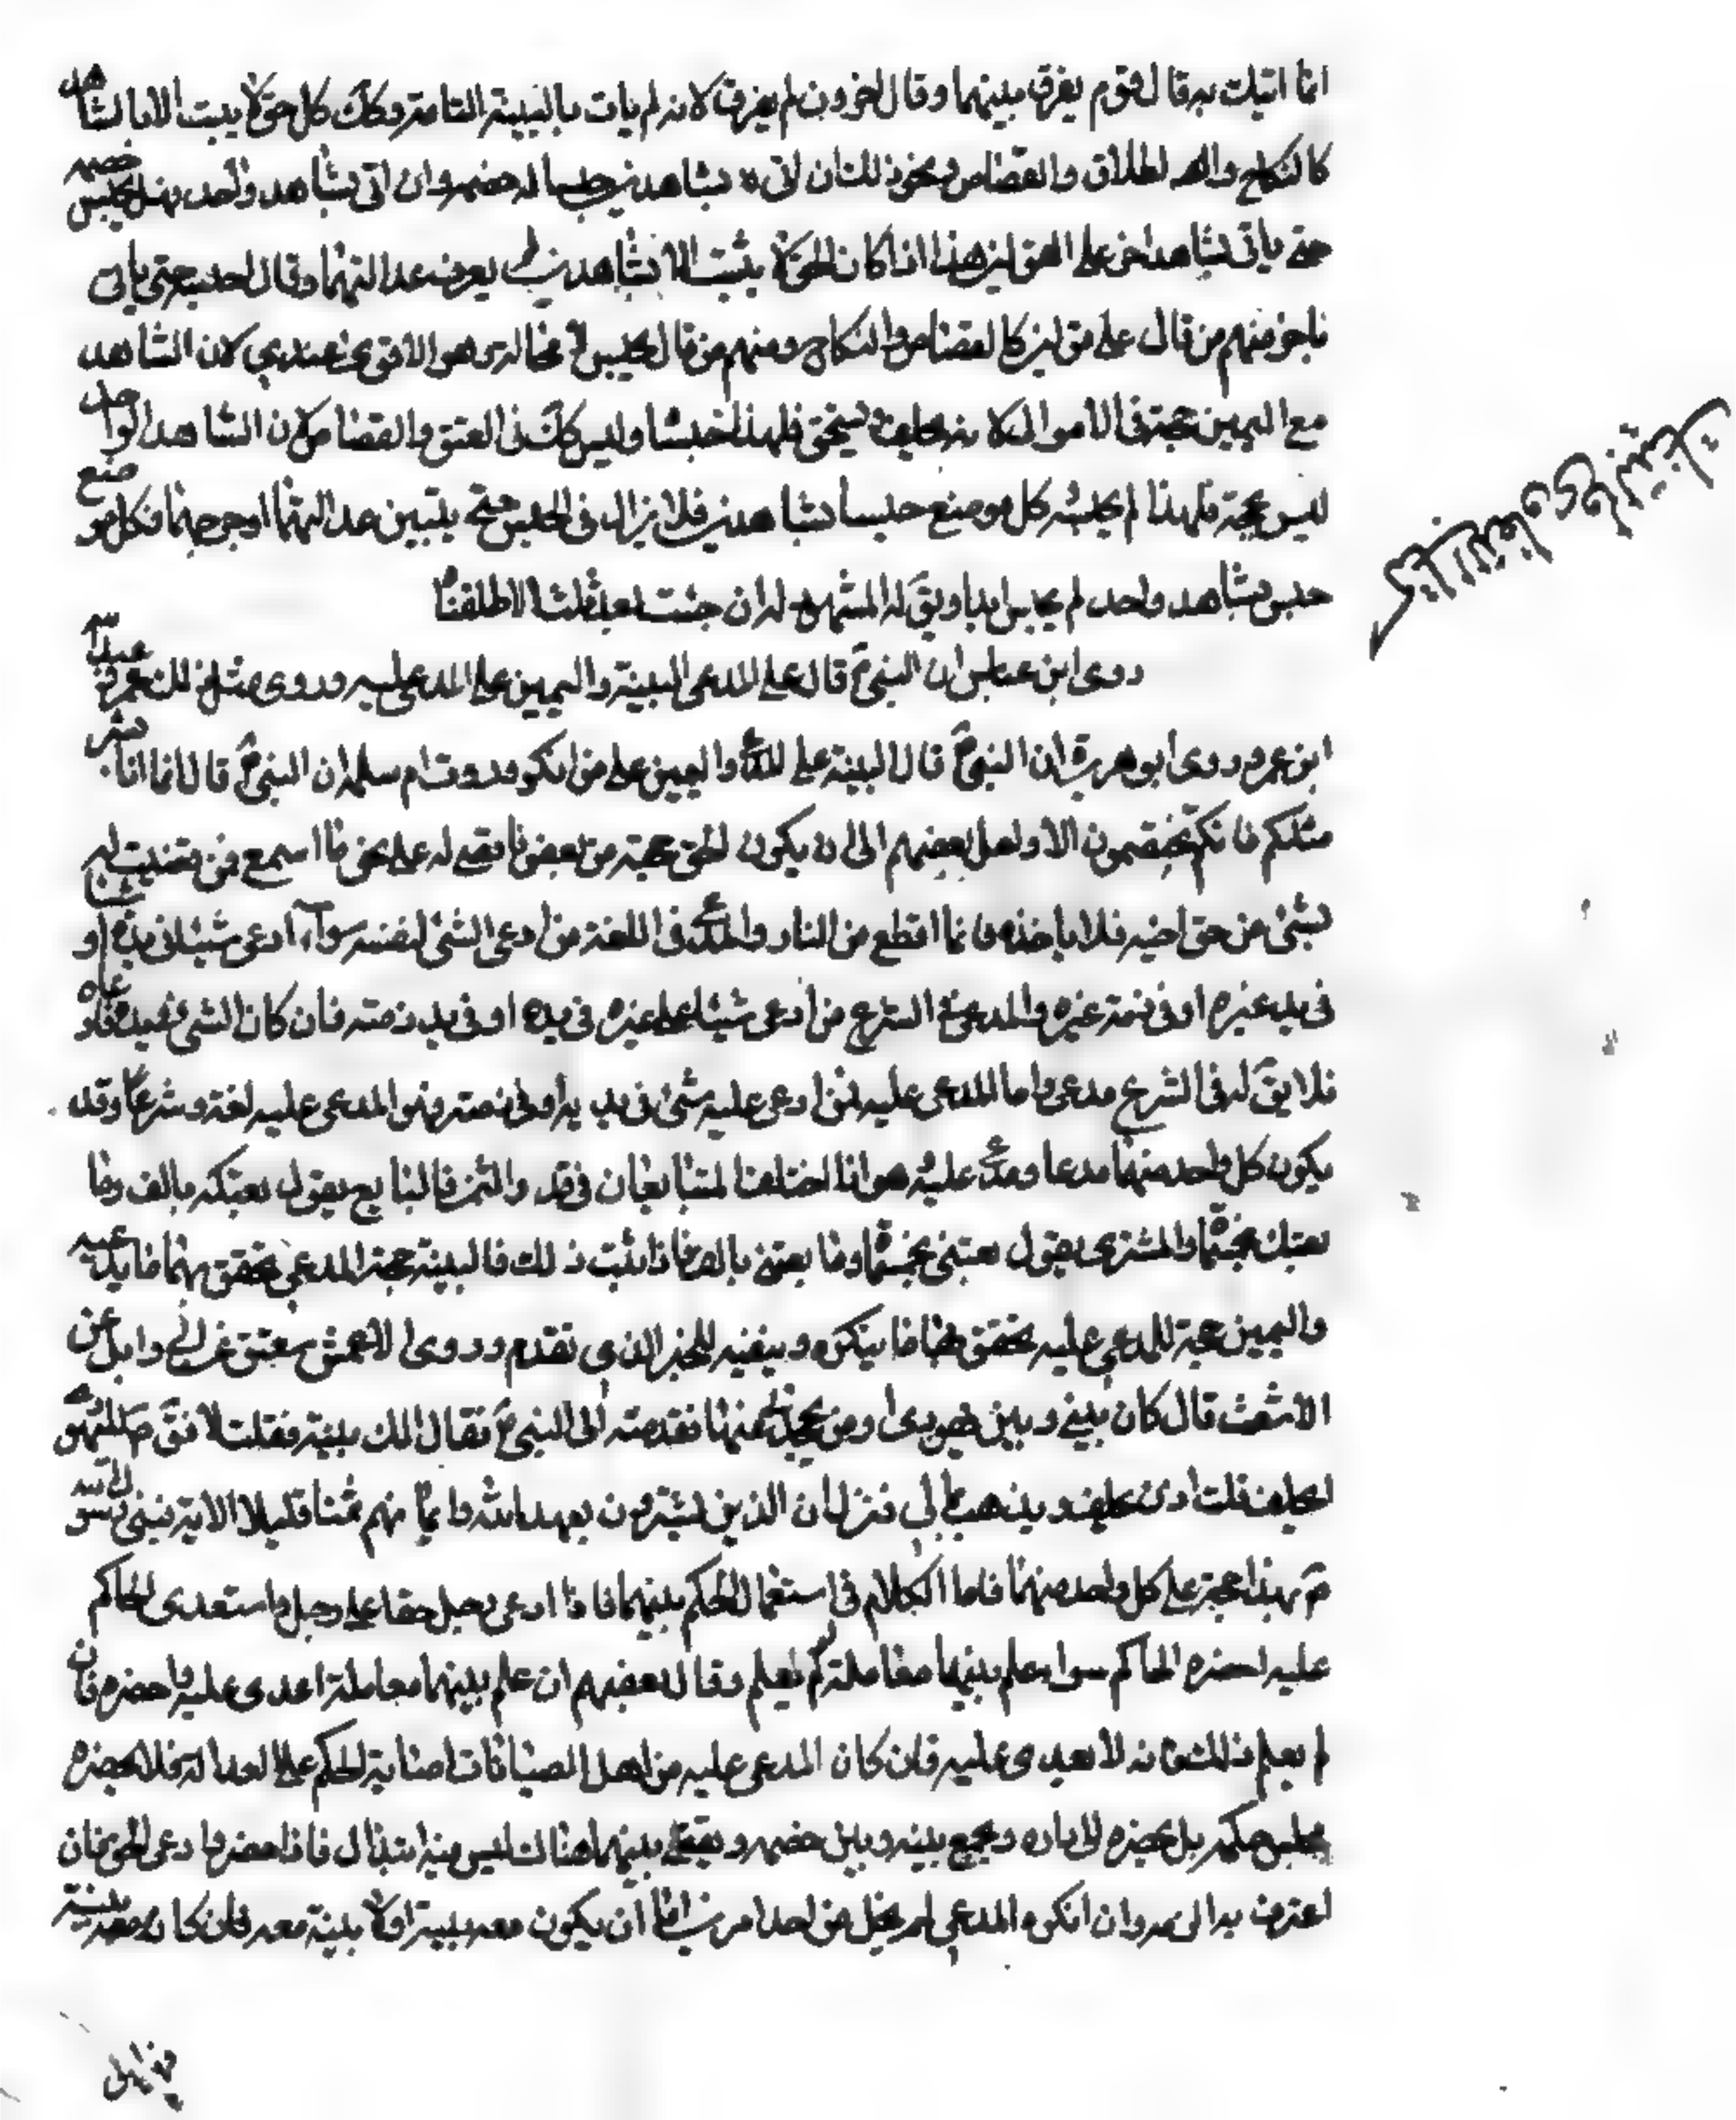 انما اتيك به قال قوم يفرق بينهما وقال اخرون لم يفرق لانه لم يات بالبينة التامة وكك كل حق لا يثبت الا بالشاهدين
كالنكاح والطلاق والقصاص ونحو ذلك ان اتى بشاهدين حبسا له خصمه وان اتى بشاهد واحد فهل يحبس خصمه
حتى ياتى بشاهد اخر على القولين هذا اذا كان الحق لا يثبت الا بشاهدين يعرف عدالتهما وقال احبسه حتى ياتى
باخر منهم من قال على قولين كالقصاص والنكاح ومنهم من قال يحبس لا محالة وهو الاقوى عندى لان الشاهد
مع اليمين حجة فى الاموال لانه يحلف ويستحق فلهذا حبسنا وليس كك فى العتق والقصاص لان الشاهد الواحد
ليس بحجة فلهذا لم يحبسه كل موضع حبسنا بشاهدين فلا يزال فى الحبس حتى يتبين عدالتهما او جرحهما فكل موضع
حبس بشاهد واحد لم يحبس ابدا ويق له المشهود له ان جئت بعد ثلث والا اطلقناه
روى ابن عباس ان النبى ص قال على المدعى البينة واليمين على المدعى عليه وروى مثل ذلك عمر
ابن عمرو وروى ابو هريرة ان النبى ص قال البينة على المدعى واليمين على من انكر وروت ام سلمه ان النبى ص قال انما انا بشر
مثلكم فانكم تختصمون الى ولعل بعضهم ان يكون الحن بحجته من بعض فاقضى له على نحو ما اسمع فمن قضيت له
بشئ من حق اخيه فلا ياخذه فانما اقطع من النار والمدعى فى اللغة من ادعى الشئ لنفسه سواء ادعى شيئا فى يده او
فى يد غيره او فى ذمة غيره والمدعى فى الشرع من ادعى شيئا على غيره فى يده او فى ذمته فان كان الشئ فى يده فادعاه
فلا يق له فى الشرع مدعى واما المدعى عليه فمن ادعى عليه شئ فى يديه او فى ذمته فهو المدعى عليه لغة وشرعا وقد
يكون كل واحد منهما مدعيا ومدعى عليه هو اذا اختلفا المتبايعان فى قدر الثمن فالبايع يقول بعتكه بالف وما
بعتك بخمسمائة والمشترى يقول بعتنى بخمسمائة وما بعتنى بالف فاذا ثبت ذلك فالبينة حجة المدعى يحقق بها ما يدعيه
واليمين حجة للمدعى عليه يحقق بها ما ينكره وينفيه للخبر الذى تقدم وروى الاعمش عن ابى وايل عن
الاشعث قال كان بينى وبين يهودى ارض يجحدنى منها فقدمته الى النبى ص فقال الك بينة فقلت لا فق ص لليهودى
احلف قلت اذن يحلف ويذهب بمالى فنزل ان الذين يشترون بعهد الله وايمانهم ثمنا قليلا الاية فبنى رسول الله
ص بهذا حجة على كل واحد منهما فاما الكلام فى استعمال الحكم بينهما فاذا ادعى رجل حقا على رجل واستعدى الحاكم
عليه احضره الحاكم سواء علم بينهما معاملة او لم يعلم وقال بعضهم ان علم بينهما معاملة اعدى عليه واحضره فان
لم يعلم ذلك فانه لا يعدى عليه فان كان المدعى عليه من اهل الصيانات احضاره الحاكم على العدالة فلا يحضره
مجلس حكمه بل يحضره الى داره ويجمع بينه وبين خصمه ويقضى بينهما هناك ليس فيه ابتذال فاذا حضر وادعى الحق فان
اعترف به الزمه وان انكره المدعى لم يخل من احد امرين اما ان يكون معه بينة او لا بينة معه فان كان معه بينة